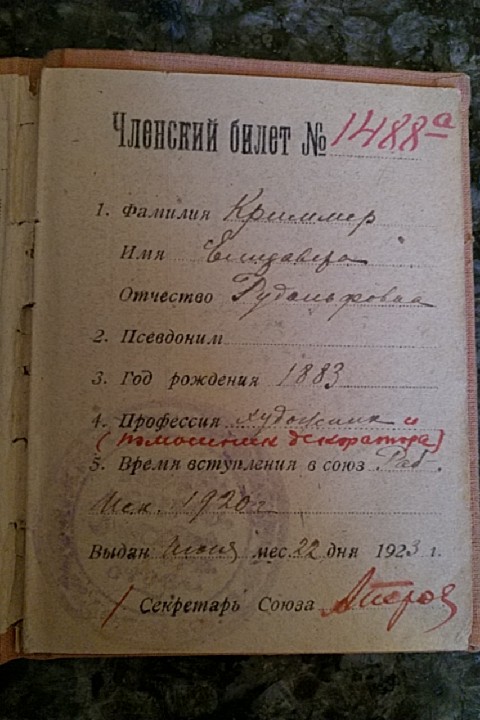 Членский билет № 1488а
1. Фамилия Криммер
Имя Елизавета
Отчество Рудольфовна
2. Псевдоним
3. Год рождения 1883
4. Профессия художник и
(помощник декоратора)
5. Время вступления в союз Раб.
Иск. 1920 г.
Выдан Июня мес. 22 дня 1923 г.
Секретарь Союза